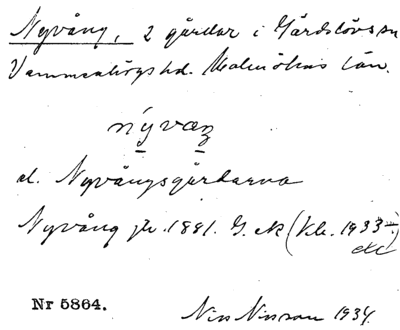 Nyvång, 2 gårdar i Gärdslövs sn
Vemmenhögs hd. Malmöhus län.
nyvæŋ
el. Nyvångsgårdarna
Nyvång jr. 1881. G. ek (Kb. 1933
etc
Nr 5864.
Nils Nilsson 1934.